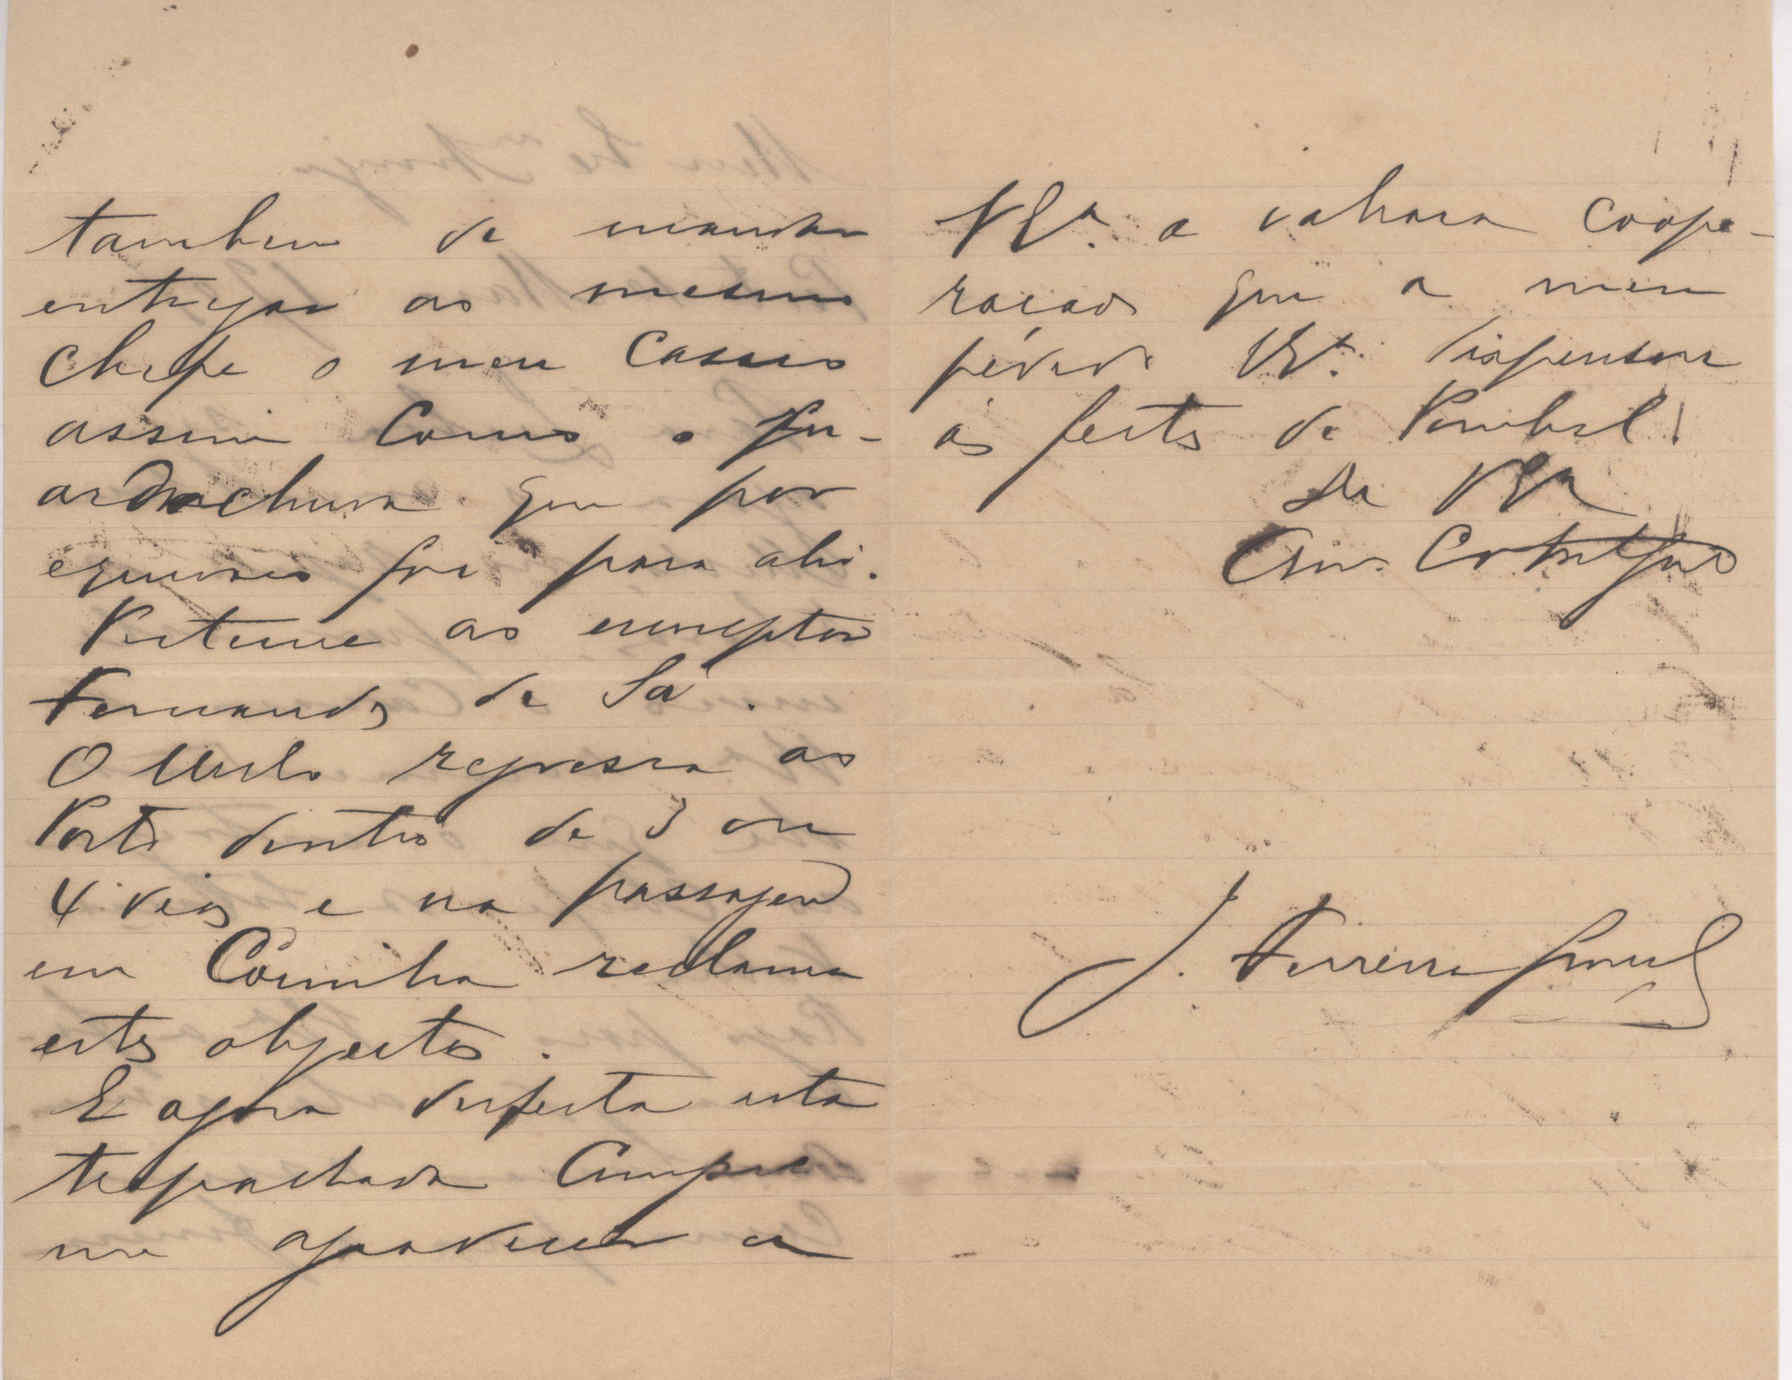 tambem de mandar
entregar ao mesmo
chefe o meu casaco
assim como o gu-
ardachuva que por
equivoco foi para ahi.
Pertence ao esculptor
Fernandes de Sá.
O Mello regressa ao
Porto dentro de 3 ou
4 dias e na passagem
em Coimbra reclama
estes objectos.
E agora desfeita esta
trapalhada cumpre
me agradecer a
VExª. a valiosa coope-
ração que a meu
pédido VExª. dispensou
ás festas de Pombal!
De VExª
J. Ferreira